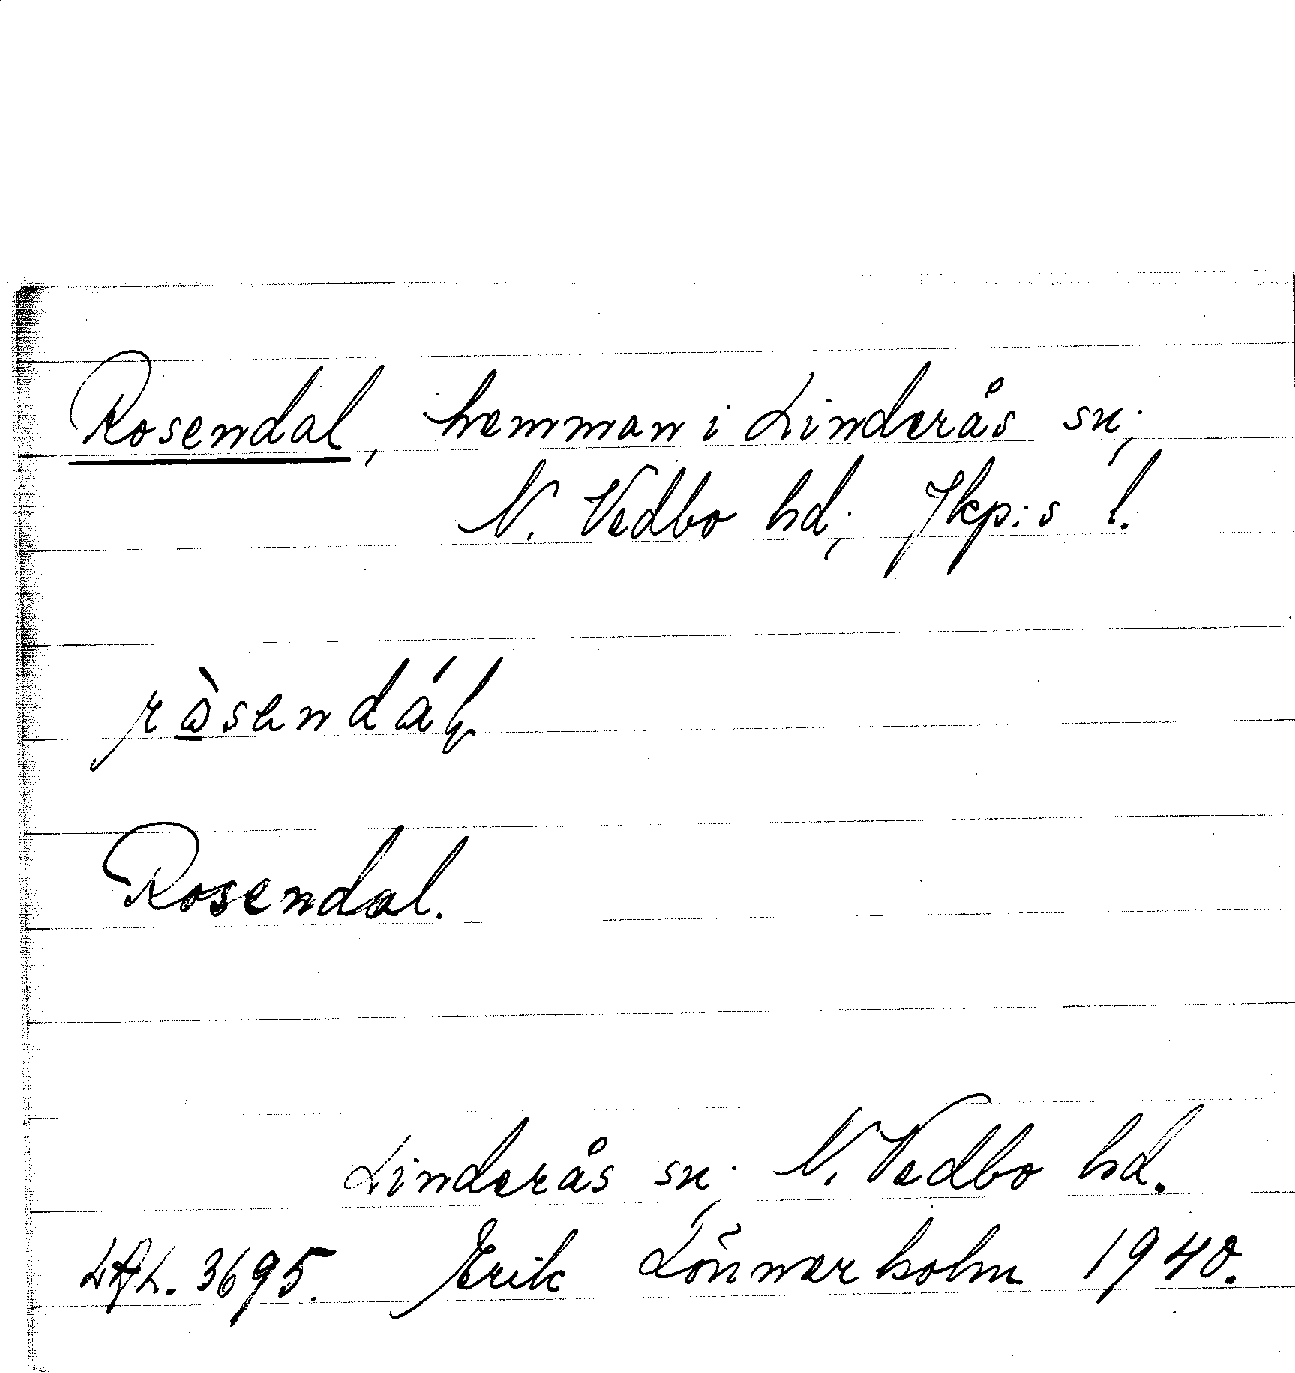 Rosendal, hemman i Linderås sn;
N. Vedbo hd; Jkp:s l.
Rosendal.
Linderås sn; N. Vedbo hd.
3695. Erik Lönnerholm 1940.